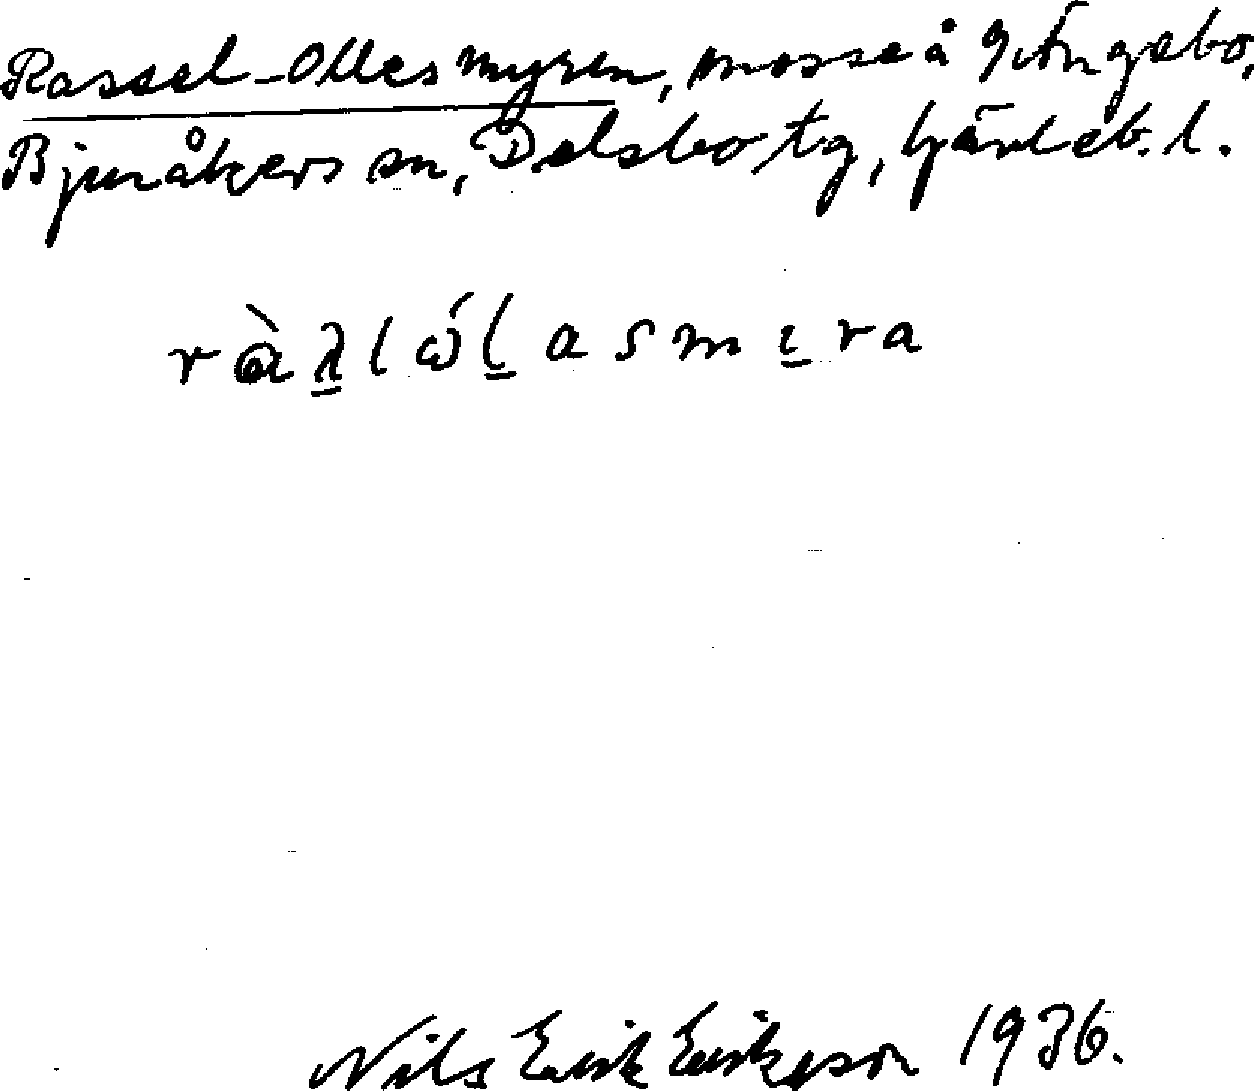 Rassel-Olles myren, mosse å Ängebo,
Bjuråkers sn, Delsbo tg, Gävleb. l.
Nils Erik Eriksson 1936.